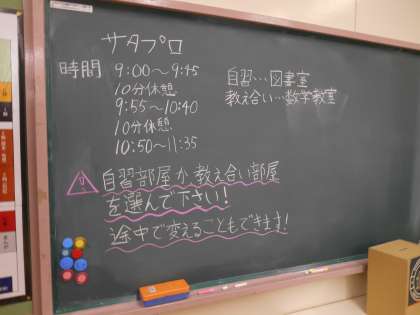 サタプロ
時間 9:00〜9:45
10分休憩
9:55〜10:40
10分休憩
10:50〜11:35
自習…図書室
教え合い…数学教室
自習部屋か教え合い部屋
を選んで下さい!
途中で変えることもできます!